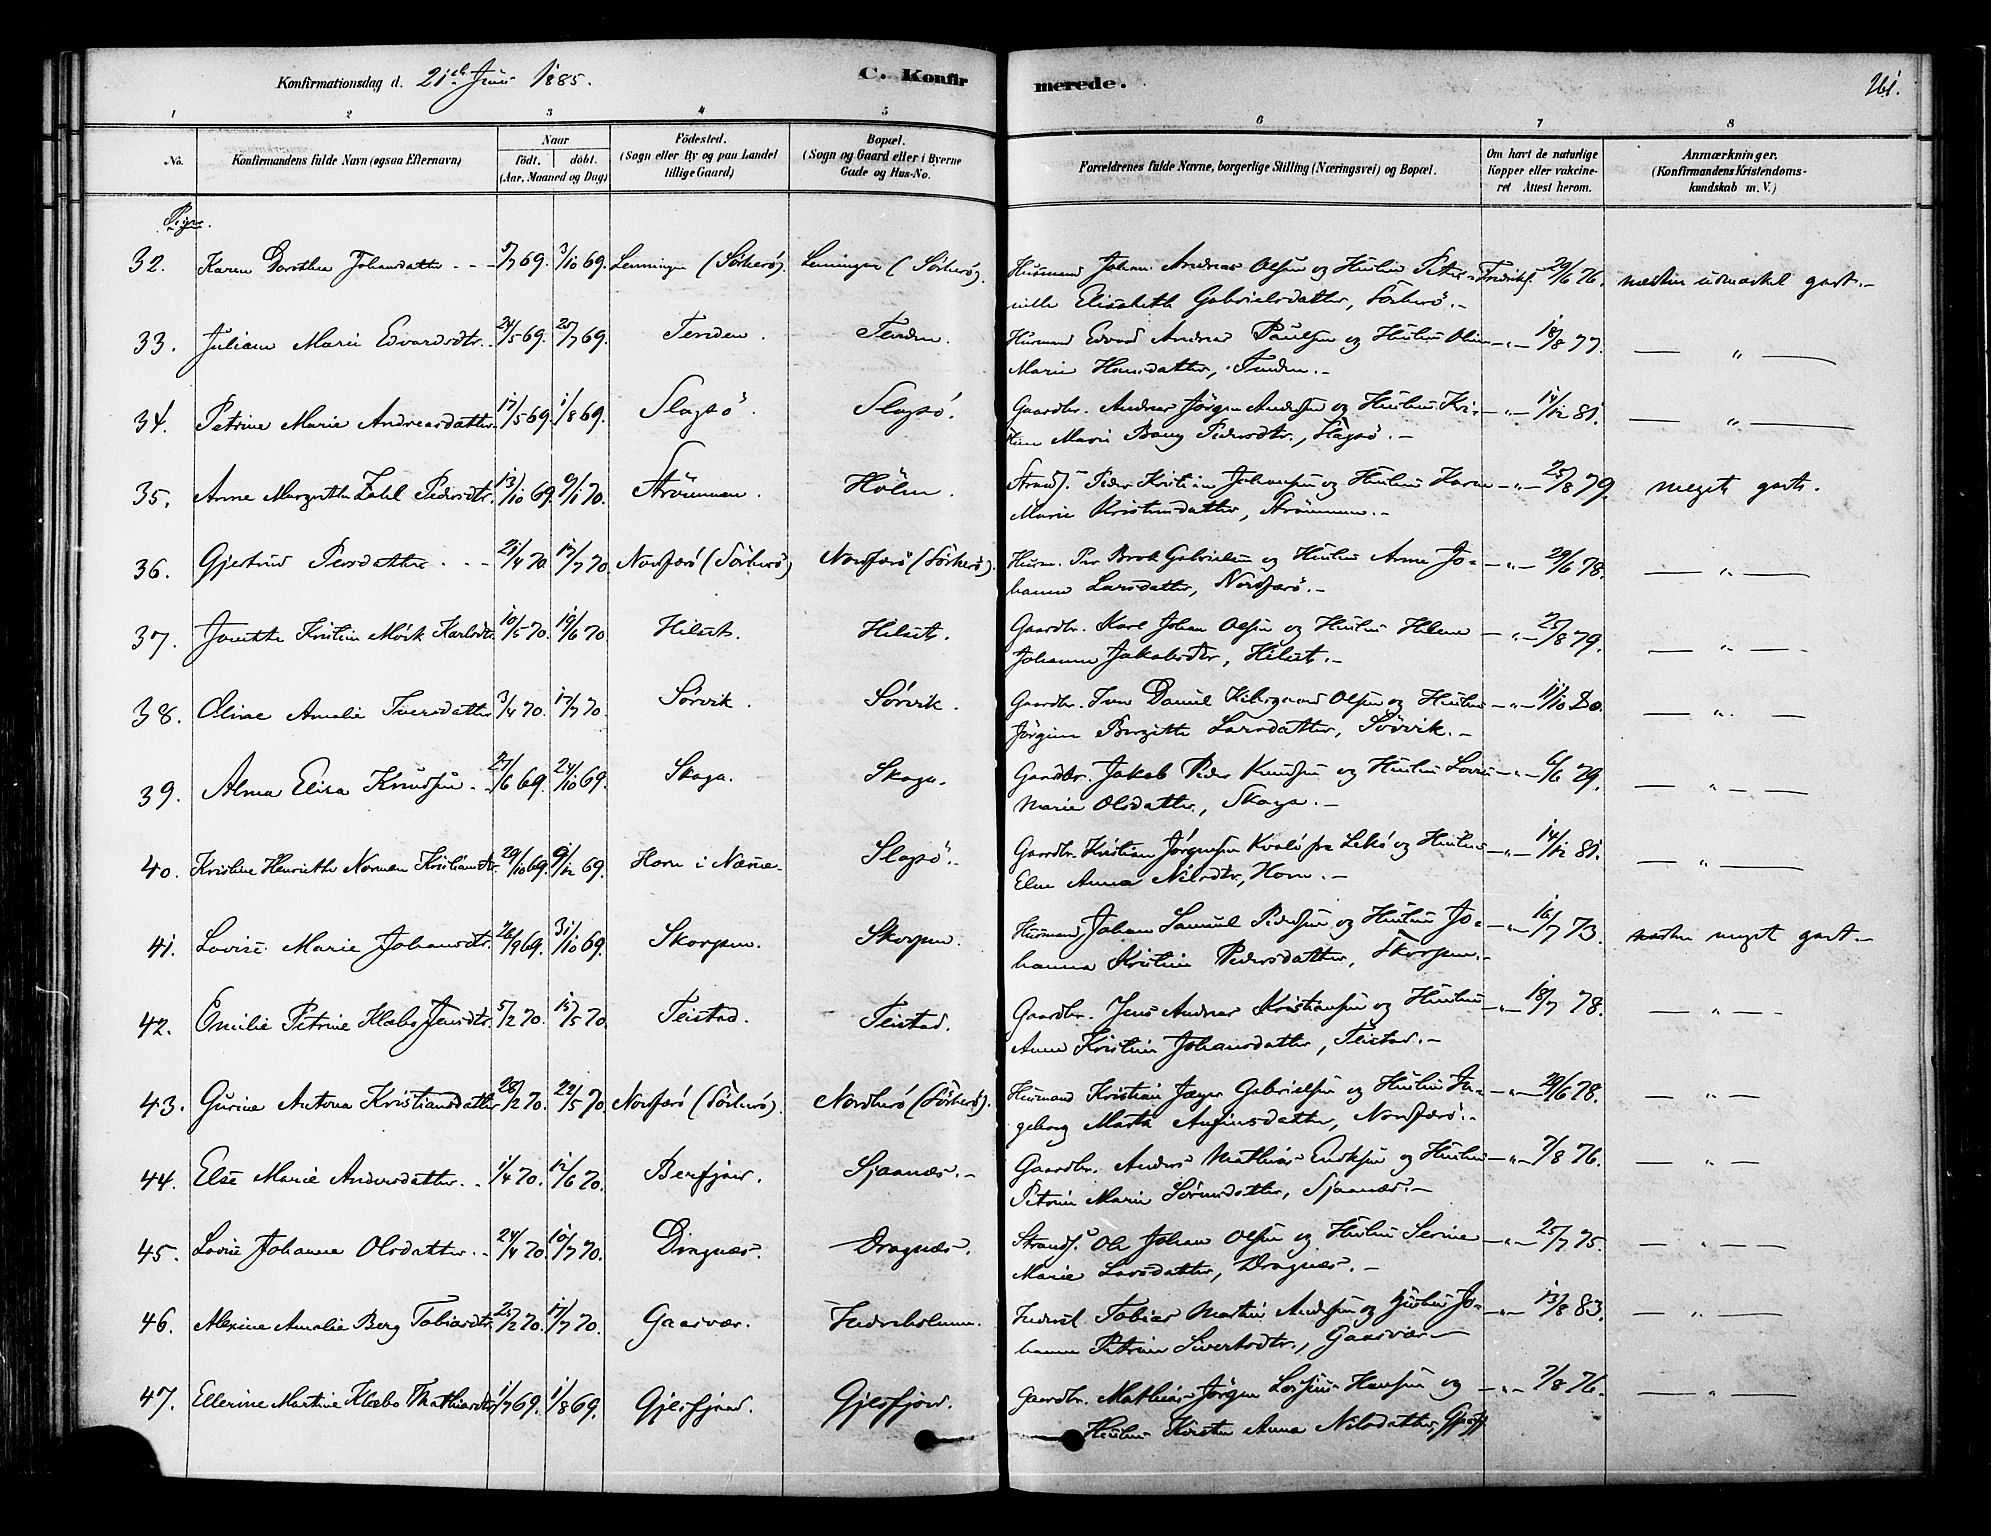 Konfirmationsdag d. 21de Juni 1885.
C. Konfirmerede.
261.
1 2 3 4 5 6 7 8
No.
Konfirmandens fulde Navn (ogsaa Efternavn)
Naar
födt. döbt.
(Aar, Maaned og Dag)
Födested.
(Sogn eller By og paa Landet
tillige Gaard)
Bopæl.
(Sogn og Gaard eller i Byerne
Gade og Hus-No.
Forældrenes fulde Navne, borgerlige Stilling (Næringsvei) og Bopæl.
Om havt de naturlige
Kopper eller vakcine-
ret Attest herom.
Anmærkninger.
(Konfirmandens Kristendoms-
kundskab m. V.)
Piger.
32. Karen Dorothea Johansdatter 5/7 69. 3/10 69. Lenningen (Sörherö). Lenningen (Sörherö). Husmand Johan Andreas Olsen og Hustru Petronille Elisabeth Gabrielsdatter, Sörherö. 29/6 76. næsten udmærket godt.
33. Juliane Marie Edvardsdtr. 24/5 69. 25/7 69. Tenden. Tenden. Husmand Edvard Andreas Paulsen og Hustru Oline
Marie Hansdatter, Tenden. 18/8 77. — " —
34. Petrine Marie Andreasdatter. 17/5 69. 1/8 69. Slapsö. Slapsö. Gaardbr. Andreas Jörgen Andersen og Hustru Kri-
Marie Bang Pedersdtr., Slapsö. 14/12 81. — " —
35. Anne Margrethe Zahl Pedersdtr. 13/10 69. 9/1 70. Strömmen. Holm. Strands. Peder Kristian Johansen og Hustru Karen
Marie Kristensdatter, Strömmen. 25/8 79. meget godt.
36. Gjertrud Persdatter 21/4 70. 17/7 70. Nordherö (Sörherö) Nordherö (Sörherö). Husm. Per Brok Gabrielsen og Hustru Anne Jo-
hanna Larsdatter, Nordherö. 29/6 78. — " —
37. Kristine Mörk Karlsdtr. 10/5 70. 19/6 70. Hilset. Hilset. Gaardbr. Karl Johan Olsen og Hustru Helene
Johanna Jakobsdtr, Hilset. 25/8 79. — " —
38. Oline Amalie Iversdatter 3/4 70. 17/7 70. Sørvik. Sørvik. Gaardbr. Iver Daniel Olsen og Hustru
Jörgine Bergitte Larsdatter, Sörvik. 11/10 80. — " —
39. Alma Elisa Knudsen 27/6 69. 24/10 69. Skaga. Skaga. Gaardbr. Jakob Peder Knudsen og Hustru Lovise
Marie Olsdatter, Skaga. 6/6 79. — " —
40. Kristine Henriette Norman Kristiansdtr. 29/10 69. 9/12 69. Horn i Næsne. Slapsö. Gaardbr. Kristian Jörgensen Kvalö fra Lekö og Hustru
Else Anna Nilsdtr, Horn. 14/12 81. — " —
41. Lovise Marie Johansdtr. 26/9 69. 31/10 69. Skorpen. Skorpen. Husmand Johan Samuel Pedersen og Hustru Jo-
hanna Kristine Pedersdatter, Skorpen. 16/7 73. næsten meget godt.
42. Emilie Petrine Klæbo Jensdtr. 5/2 70. 15/5 70. Teistad. Teistad. Gaardbr. Jens Andreas Kristiansen og Hustru
Anne Kristine Johansdatter, Teistad. 18/7 78. — " —
43. Gurine Antona Kristiansdatter 28/2 70. 22/5 70 Nordherö (Sörherö). Nordherö (Sörherö). Husmand Kristian Jæger Gabrielsen og Hustru In-
geborg Marta Anfinsdatter, Nordherö. 29/6 78. — " —
44. Else Marie Andersdatter. 1/4 70. 12/6 70. Berfjord. Sjaanæs. Gaardbr. Anders Mathias Eriksen og Hustru
Petrine Marie Sörensdatter, Sjaanæs. 7/8 76. — " —
45. Lovise Johanne Olsdatter. 24/4 70. 10/7 70. Dragnæs. Dragnæs. Strands. Ole Johan Olsen og Hustru Serine
Marie Larsdatter, Dragnæs. 25/7 75. — " —
46. Alexine Amalie Berg Tobiasdtr. 25/2 70. 17/7 70. Gaasvær. Indreholmen. Inderst Tobias Martin Andersen og Hustru Jo-
hanna Petrine Sivertsdtr., Gaasvær. 13/8 83. — " —
47. Ellerine Martine Klæbo Mathiasdtr. 1/7 69. 1/8 69. Gjersfjord. Gjersfjord. Gaardbr. Mathias Jörgen Hansen og
Hustru Kirsten Anna Nilsdatter, Gjersfj. 7/8 76. — " —